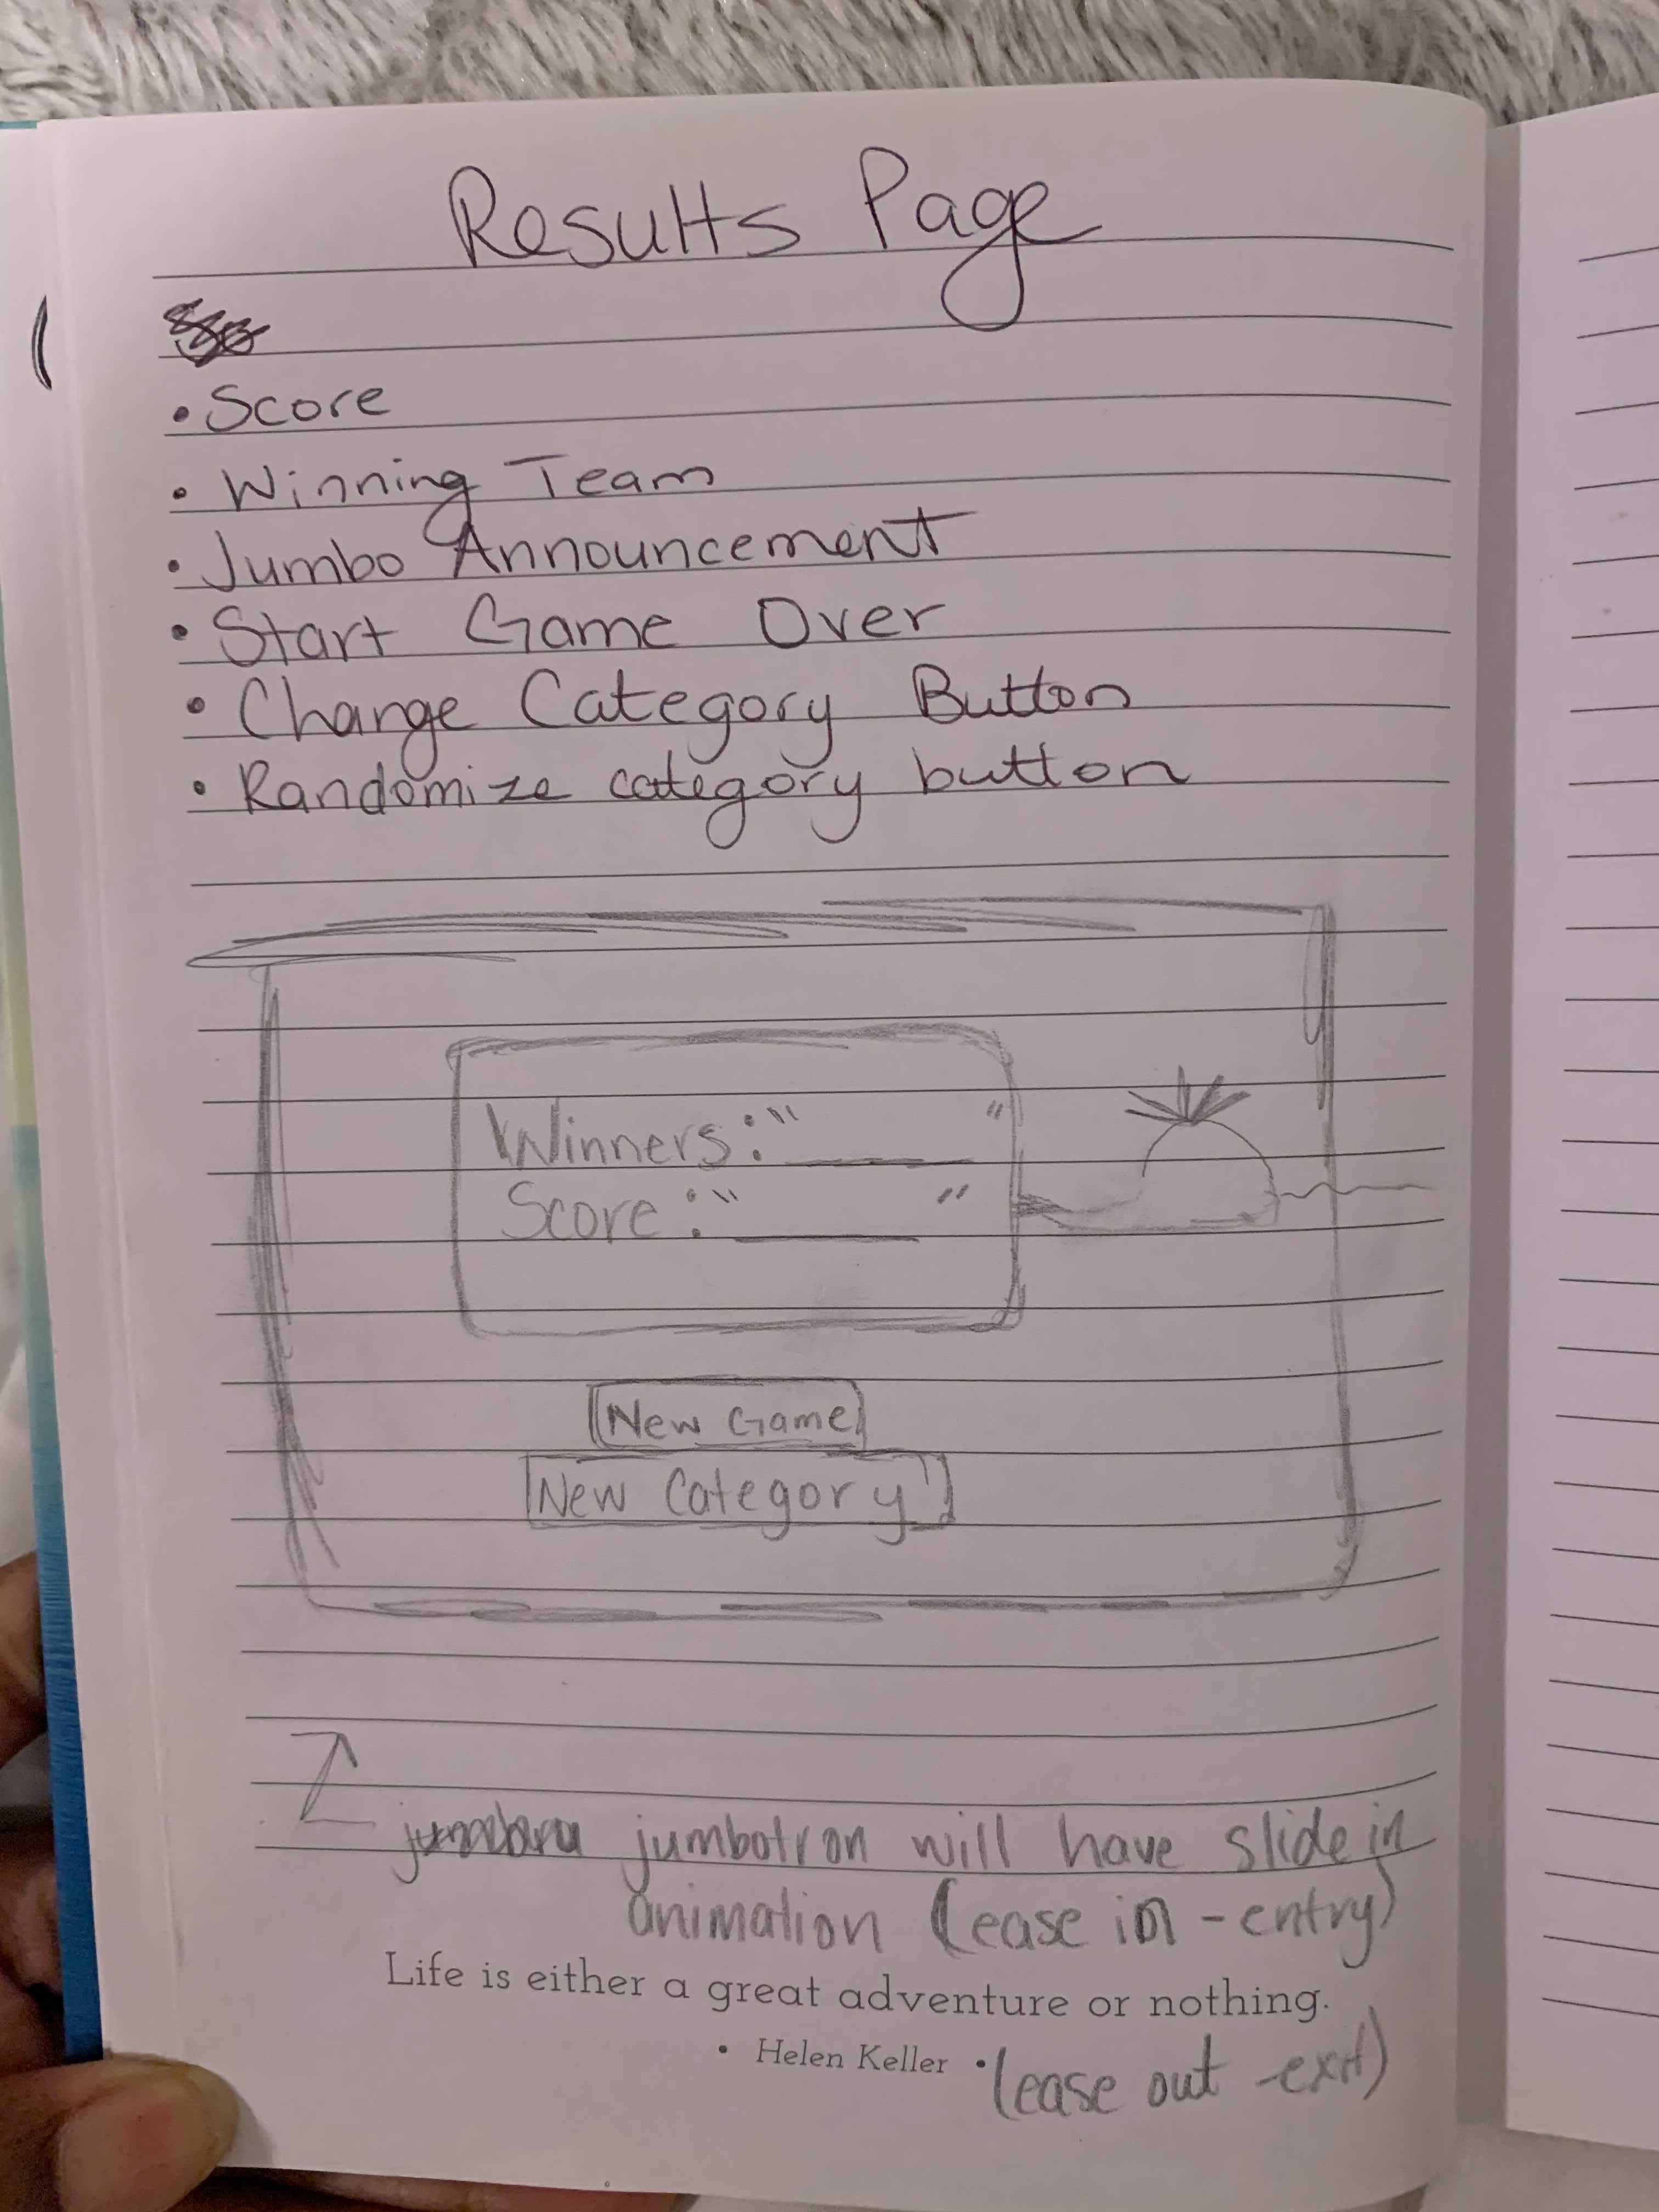 Results Page
• Score
• Winning Team
• Jumbo Announcement
• Start Game Over
• Change Category Button
• Randomize category button
Winners: "______"
Score: "______"
New Game
New Category
jumbotron will have slide in
animation (ease in - entry)
Life is either a great adventure or nothing.
• Helen Keller •
(ease out - exit)